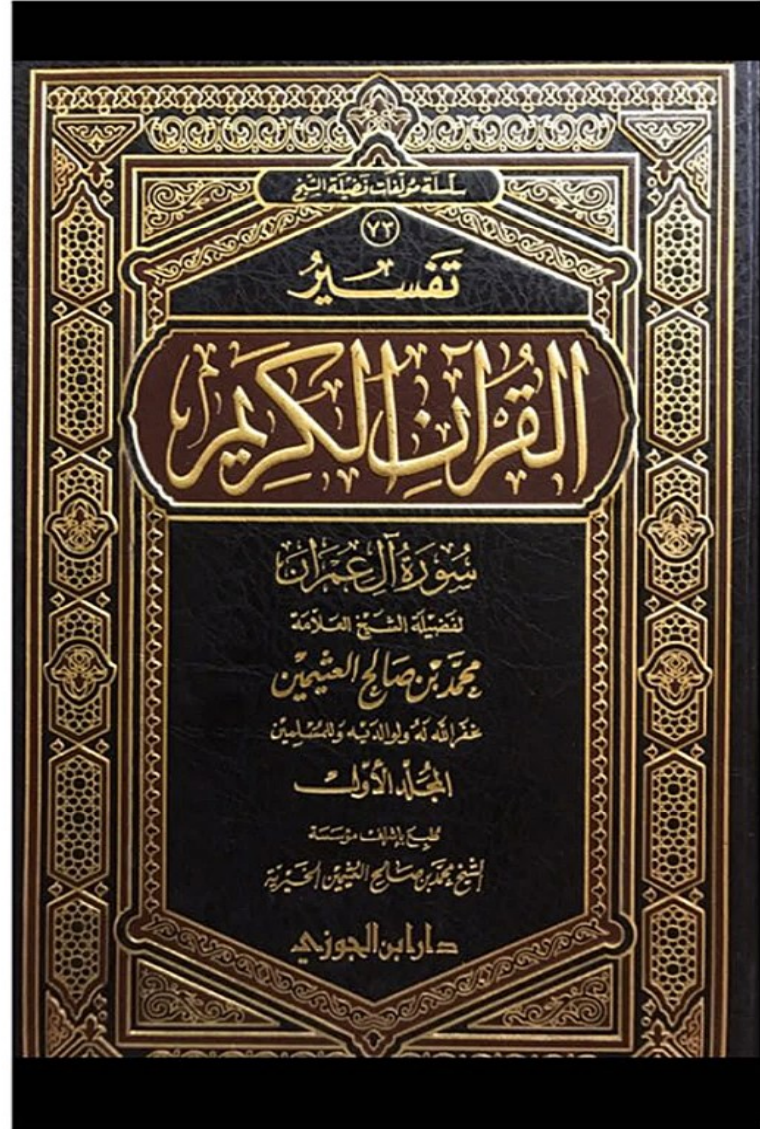 سلسلة مؤلفات فضيلة الشيخ
٧٣
تَفسِيرُ
القُرآنِ الكَرِيمِ
سُورَةُ آل عِمرَان
لفَضِيلَة الشَّيخ العَلّامَة
محمَّد بن صَالِح العثيمين
غفَر اللَّه لَهُ ولوالدَيه وَللمُسْلِمِين
المجَلّد الأوّل
طُبِعَ بإشراف مؤسّسَة
الشيخ محمّد بن صَالح العثيمين الخيريّة
دار ابن الجوزي